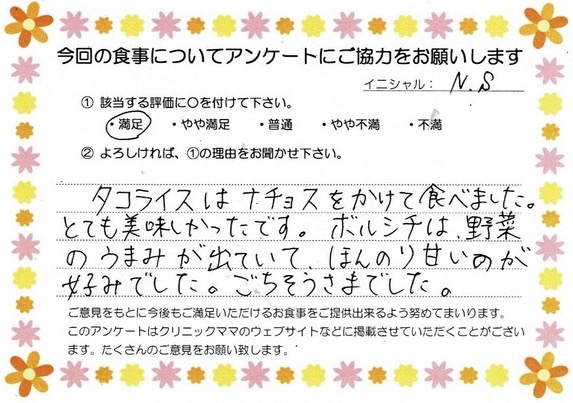 今回の食事についてアンケートにご協力をお願いします
イニシャル： N.S
① 該当する評価に○を付けて下さい。
・満足 ・やや満足 ・普通 ・やや不満 ・不満
② よろしければ、①の理由をお聞かせ下さい。
タコライスはナチョスをかけて食べました。
とても美味しかったです。ボルシチは、野菜
のうまみが出ていて、ほんのり甘いのが
好みでした。ごちそうさまでした。
ご意見をもとに今後もご満足いただけるお食事をご提供出来るよう努めてまいります。
このアンケートはクリニックママのウェブサイトなどに掲載させていただくことがござい
ます。たくさんのご意見をお願い致します。